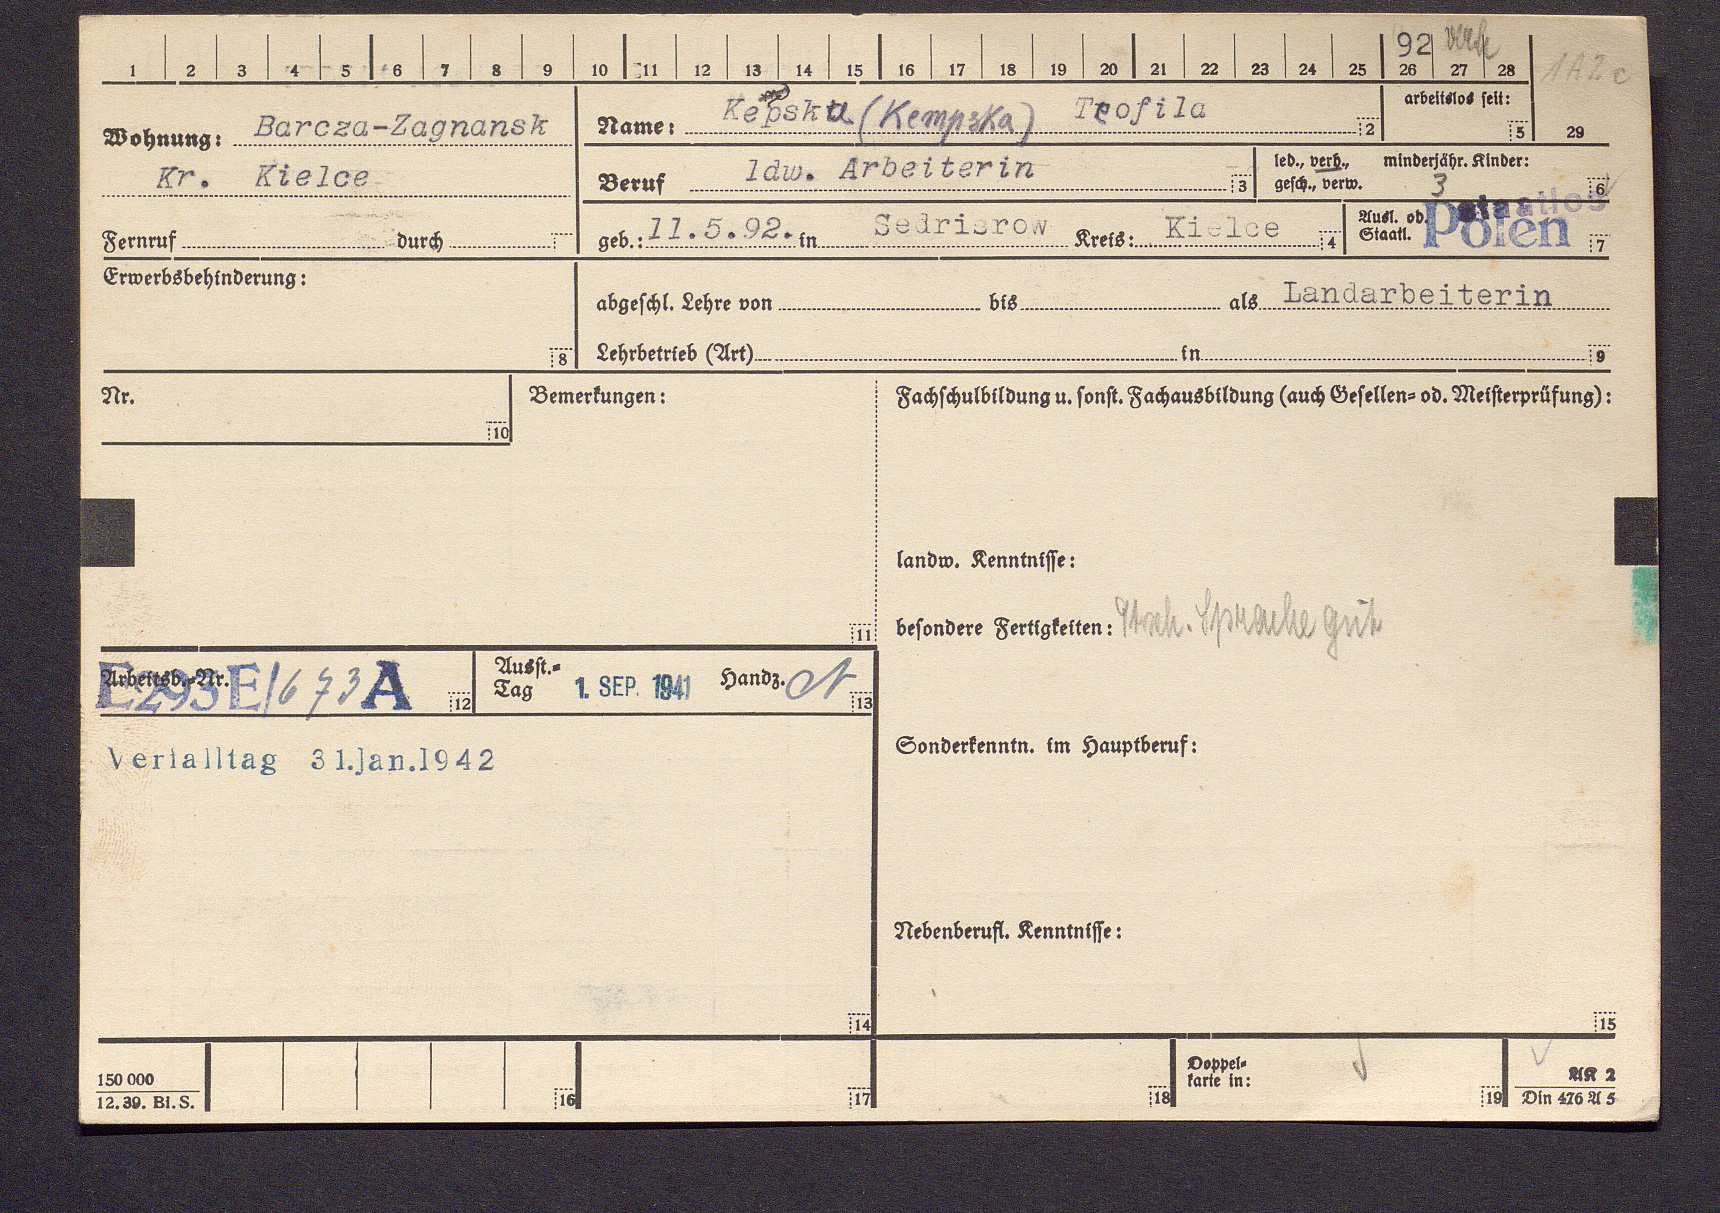 1 2 3 4 5 6 7 8 9 10 11 12 13 14 15 16 17 18 19 20 21 22 23 24 25 26 27 28
92 verh
1A2c
Wohnung: Barcza-Zagnansk
Kr. Kielce
Fernruf durch
Name: Kepska (Kempska) Teofila 2
arbeitslos seit: 5
29
Beruf ldw. Arbeiterin 3
led., verh., gesch., verw.
minderjähr. Kinder: 3 6
geb.: 11.5.92. in Sedrisrow Kreis: Kielce 4
Ausl. od. Staatl. Polen staatlos 7
Erwerbsbehinderung: 8
abgeschl. Lehre von bis als Landarbeiterin
Lehrbetrieb (Art) in 9
Nr. 10
Bemerkungen: 11
Fachschulbildung u. sonst. Fachausbildung (auch Gesellen- od. Meisterprüfung):
landw. Kenntnisse:
besondere Fertigkeiten: Sprache gut
Arbeitsb.-Nr. E293E/673A 12
Ausst.-Tag 1. SEP. 1941 Handz. 13
Verfalltag 31.Jan.1942
Sonderkenntn. im Hauptberuf:
Nebenberufl. Kenntnisse:
14
15
150 000
12. 39. Bl. S.
16
17
18
Doppel-
karte in: 19
AK 2
Din 476 A 5